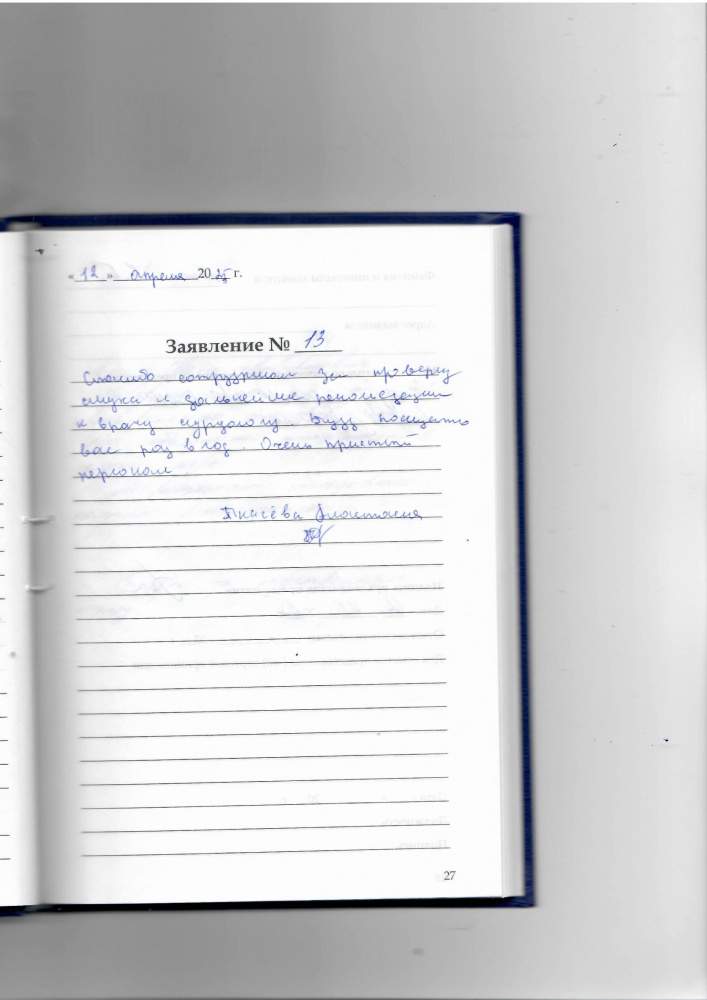 « 12 » апреля 2025 г.
Заявление № 13
Спасибо сотрудникам за проверку
слуха и дальнейшие рекомендации
к врачу сурдологу. Буду посещать
вас раз в год. Очень приятный
персонал
Анастасия
27